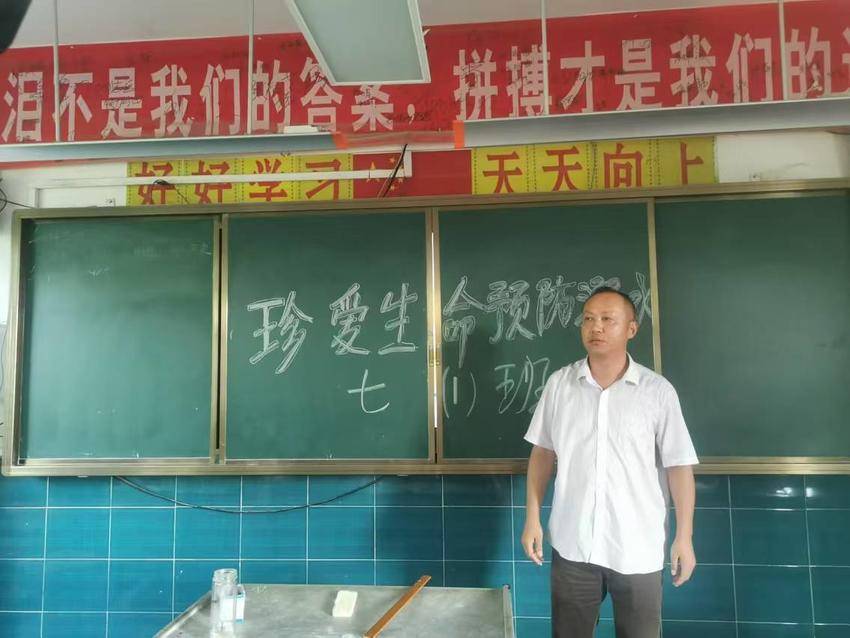 泪不是我们的答案，拼搏才是我们的
好好学习 天天向上
珍爱生命预防溺水
七（1）班